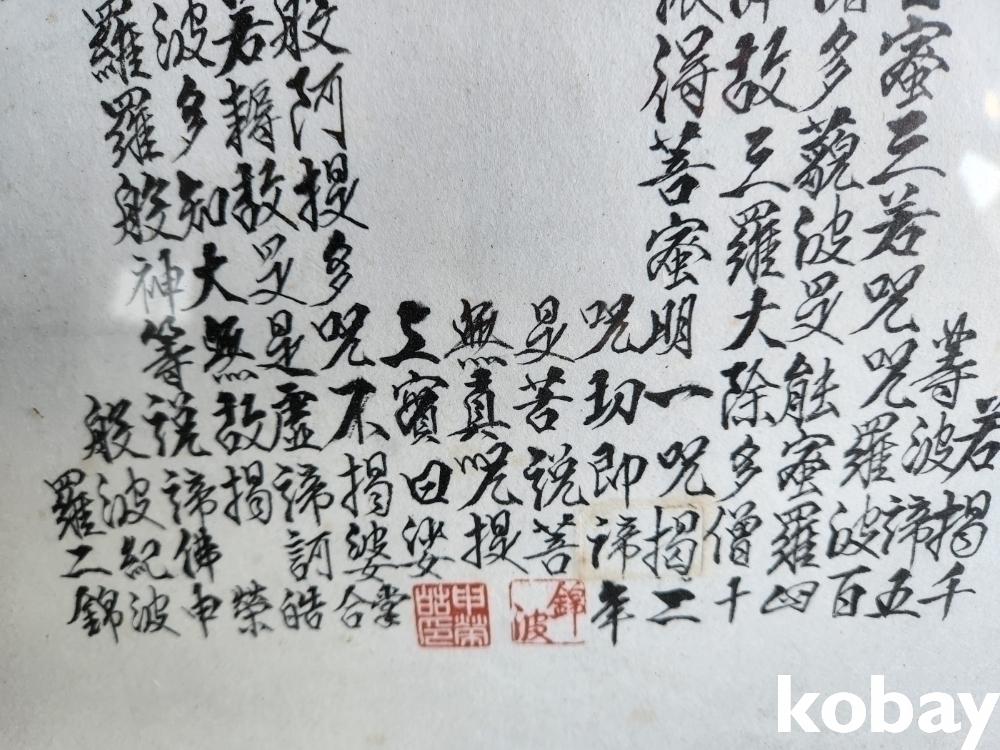 若
等波揭千
蜜三若咒咒羅諦五
多藐波是能蜜波百
故三羅大除多羅四
得菩蜜明一咒僧十
咒切即揭二
是苦說諦年
無真咒菩
上實曰提
咒不揭娑掌
般阿提多虛諦婆合
若耨故是是揭訶皓
波多知大無故諦榮
羅羅般神等說佛申
般波紀波
羅二錦
錦波
申榮皓印
kobay